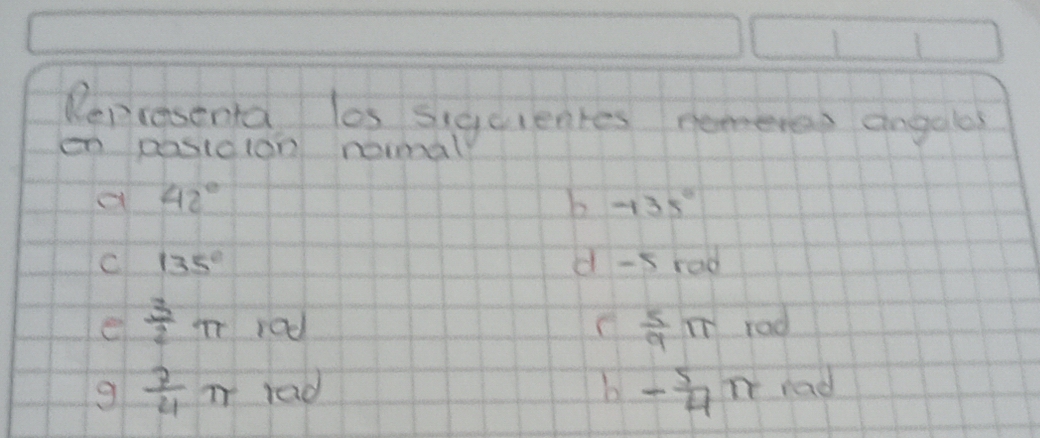 Representa los siguientes angulos
en posicion normal
a 42° b -135°
c 135° d -5 rad
e 3/2 π rad f 5/9 π rad
g π rad h - 5/4 π rad